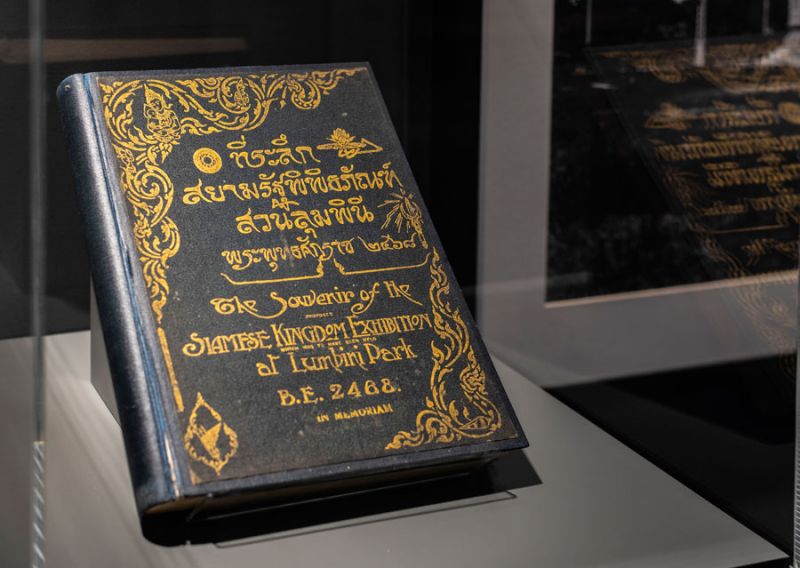 ที่ระลึก
สยามรัฐพิพิธภัณฑ์
ณ
สวนลุมพินี
พระพุทธศักราช ๒๔๖๘
The Souvenir of the
PROPOSED
SIAMESE KINGDOM EXHIBITION
WHICH WAS TO HAVE BEEN HELD
at Lumbini Park
B.E. 2468.
IN MEMORIAM